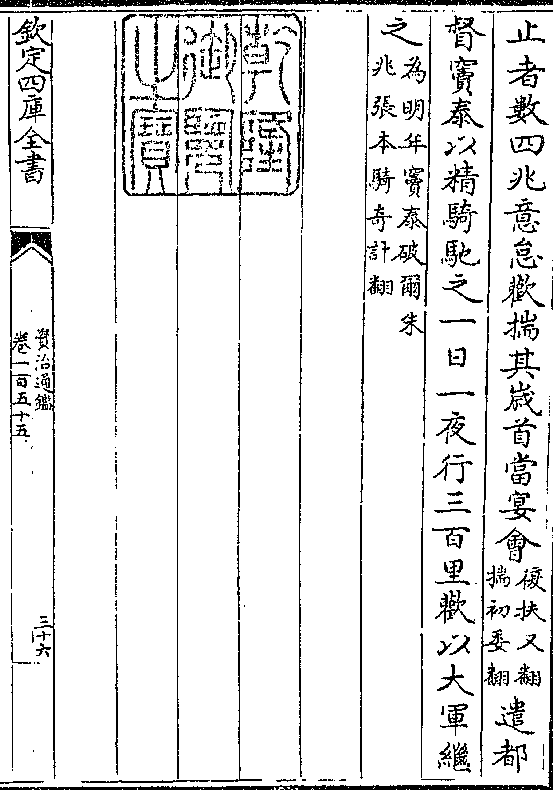 止者數四兆意怠歡揣其歲首當宴會復扶又翻揣初委翻遣都
督竇泰以精騎馳之一日一夜行三百里歡以大軍繼
之為明年竇泰破爾朱兆張本騎奇計翻
乾隆御覽之寶
欽定四庫全書
資治通鑑
卷一百五十五
三十六